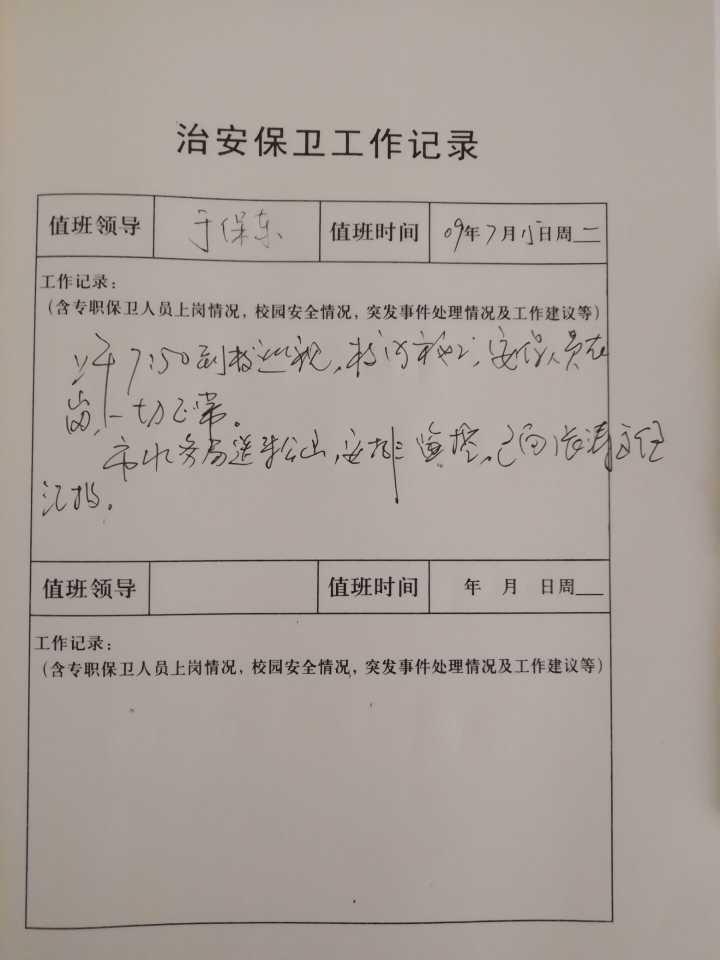 治安保卫工作记录
值班领导 于保东 值班时间 09年7月15日周二
工作记录：
（含专职保卫人员上岗情况，校园安全情况，突发事件处理情况及工作建议等）
上午7:50到校巡视，安保人员在
岗，一切正常。
市水务局送 公山，安排监控，已向张涛主任
汇报。
值班领导 值班时间 年 月 日周
工作记录：
（含专职保卫人员上岗情况，校园安全情况，突发事件处理情况及工作建议等）